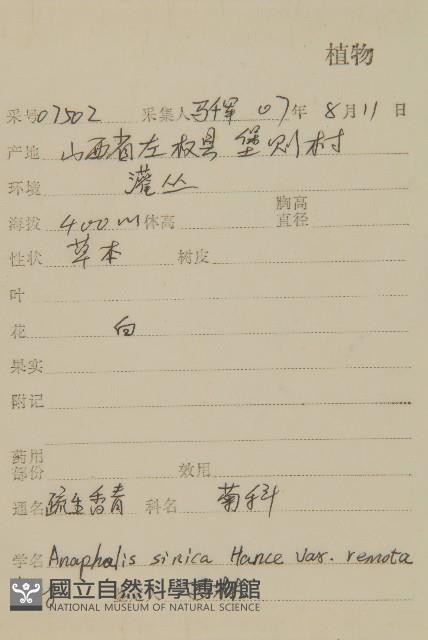 植物
采号 07502 采集人 马 07年 8月11日
产地 山西省左权县 堡则村
环境 灌丛
海拔 400m 体高 胸高直径
性状 草本 树皮
叶
花 白
果实
附记
药用部份 效用
通名 疏生香青 科名 菊科
学名 Anaphalis sinica Hance var. remota
國立自然科學博物館
NATIONAL MUSEUM OF NATURAL SCIENCE